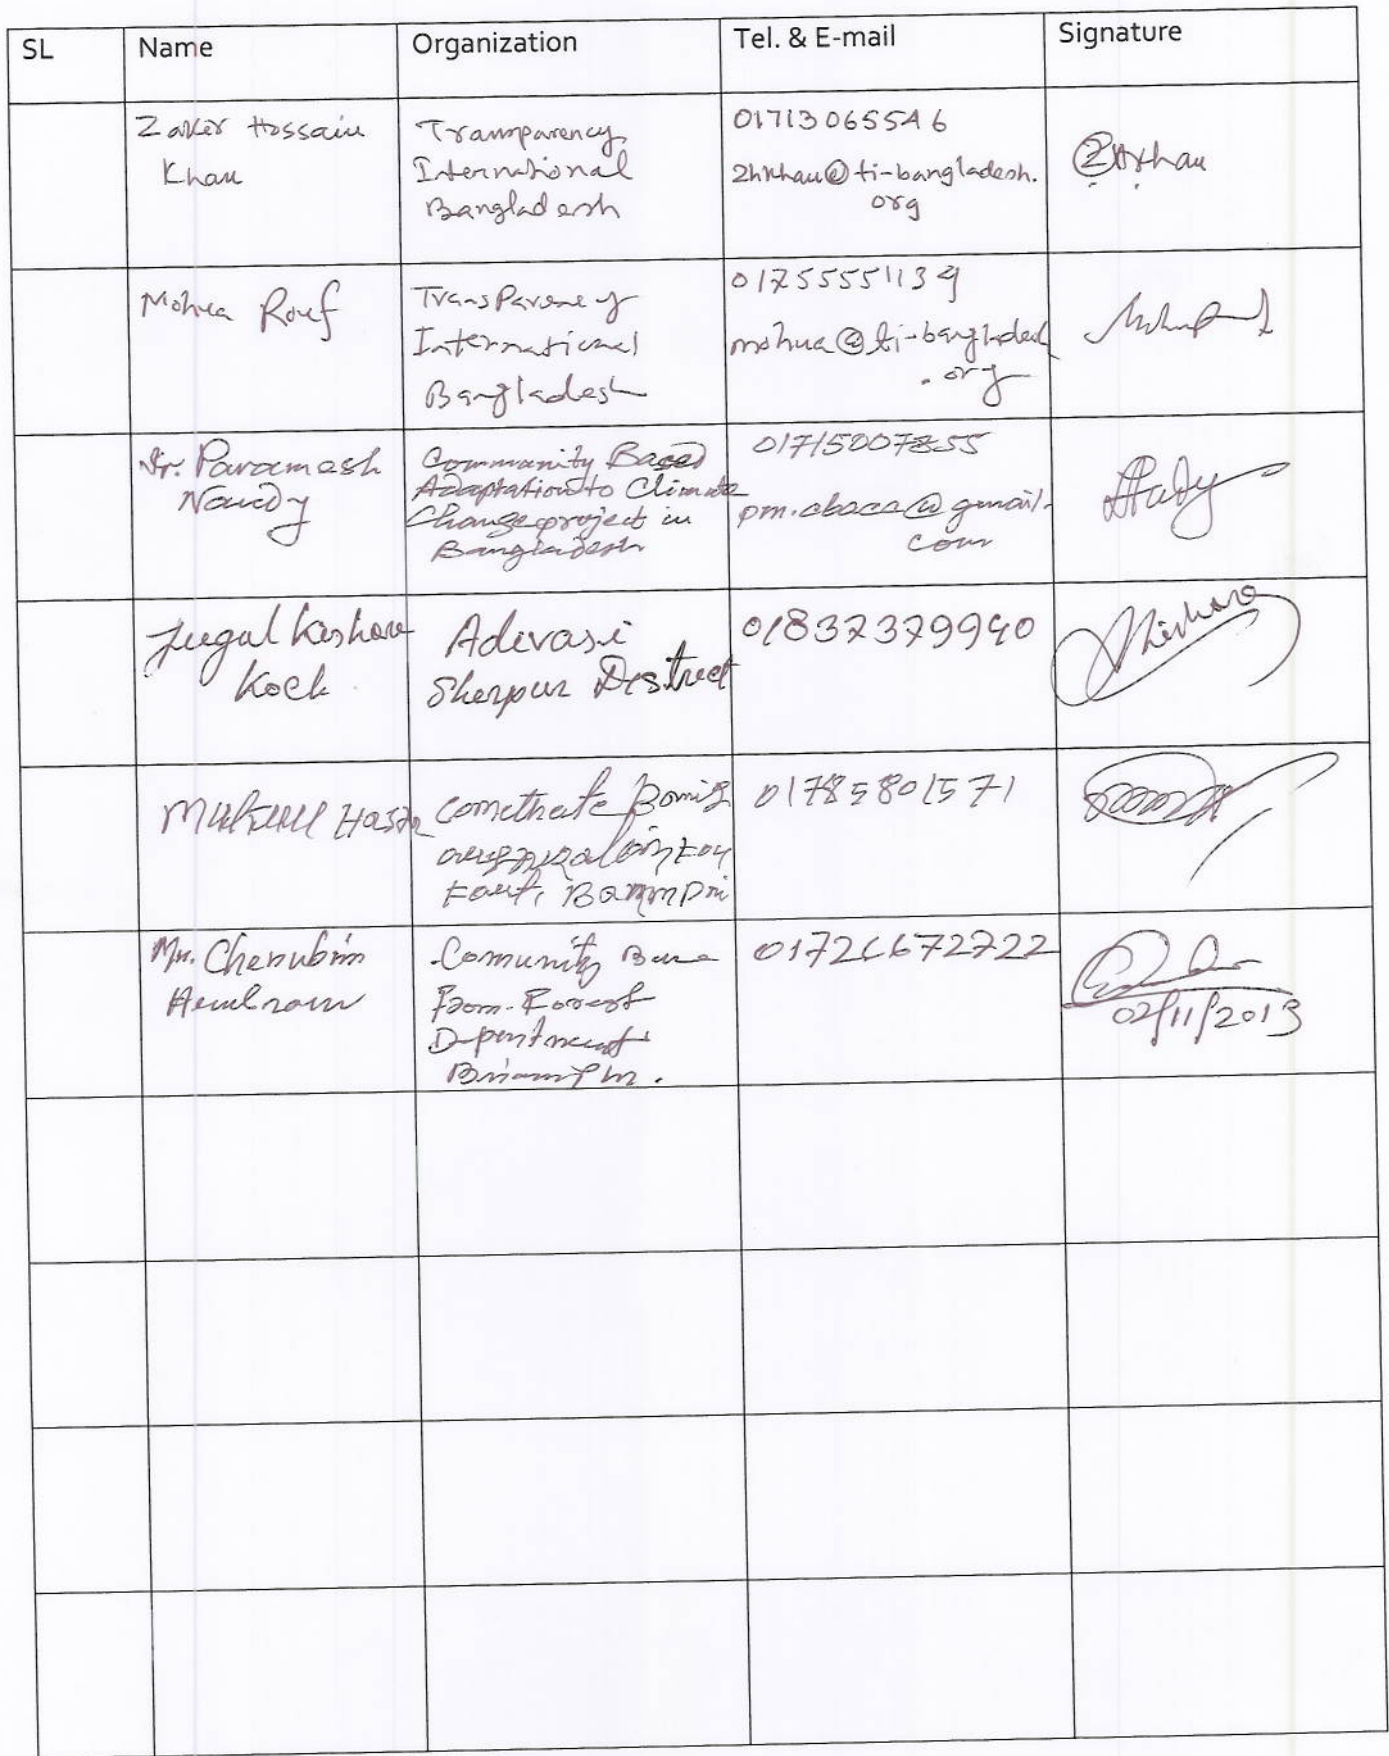 SL Name Organization Tel. & E-mail Signature
Zakir Hossain
Khan
Transparency
International
Bangladesh
01713065546
zhkhan@ti-bangladesh.
org
ZHkhan
Mohua Rouf
Transparency
International
Bangladesh
01755551134
mohua@ti-bangladesh
.org
Dr. Paramesh
Nandy
Community Based
Adaptation to Climate
Change project in
Bangladesh
01715007855
pm.cbacc@gmail.
com
Jugal Kishore
Koch
Adivasi
Sherpur District
01837379940
Kishore
Mukul
01785801571
Mr. Cherubim
Hembrom
Comunity Base
From. Forest
Department
01726672722
02/11/2013